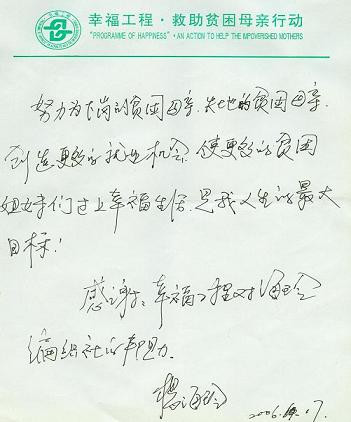 幸福工程·救助贫困母亲行动
"PROGRAMME OF HAPPINESS"·AN ACTION TO HELP THE IMPOVERISHED MOTHERS
努力为下岗的贫困母亲、失地的贫困母亲
创造更多的就业机会,使更多的贫困
姐妹们过上幸福生活,是我人生的最大
目标!
感谢:幸福工程对海玲
编织社的帮助.
杨海玲
2006. .17.